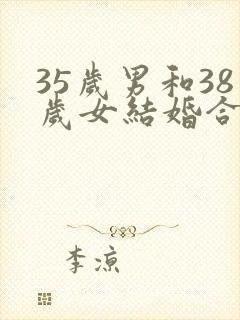 35歲男和38
歲女結婚合
李涼